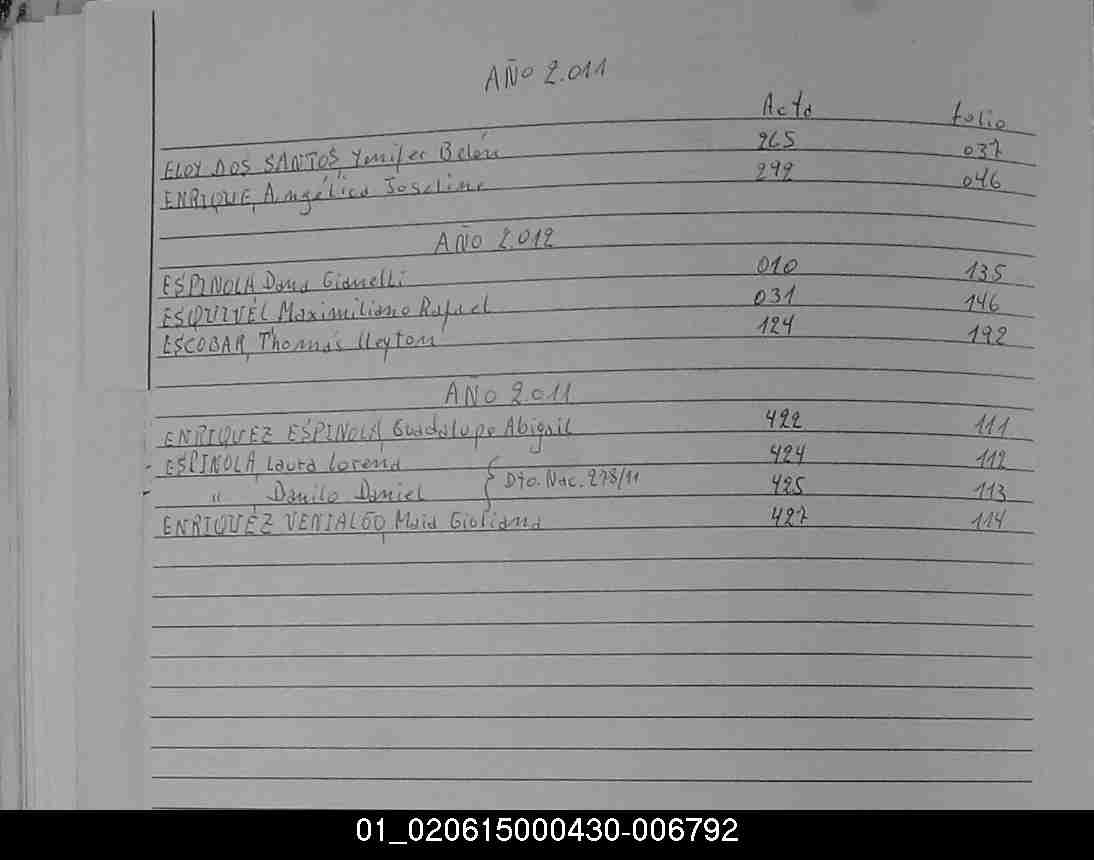 AÑO 2.011
Acta folio
ELOY DOS SANTOS, Yenifer Belén 265 037
ENRIQUE, Angélica Joseline 292 046
AÑO 2.012
ESPINOLA Dana Gianelli 010 135
ESQUIVEL Maximiliano Rafael 031 146
ESCOBAR, Thomás Lleyton 124 192
AÑO 2.011
ENRIQUEZ ESPINOLA, Guadalupe Abigail 422 111
ESPINOLA, Laura Lorena 424 112
{ Dto. Nac. 278/11
" , Danilo Daniel 425 113
ENRIQUEZ VENIALGO, Maia Giuliana 427 114
01_020615000430-006792